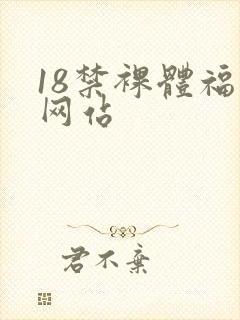 18禁裸體福
网佔
君不棄